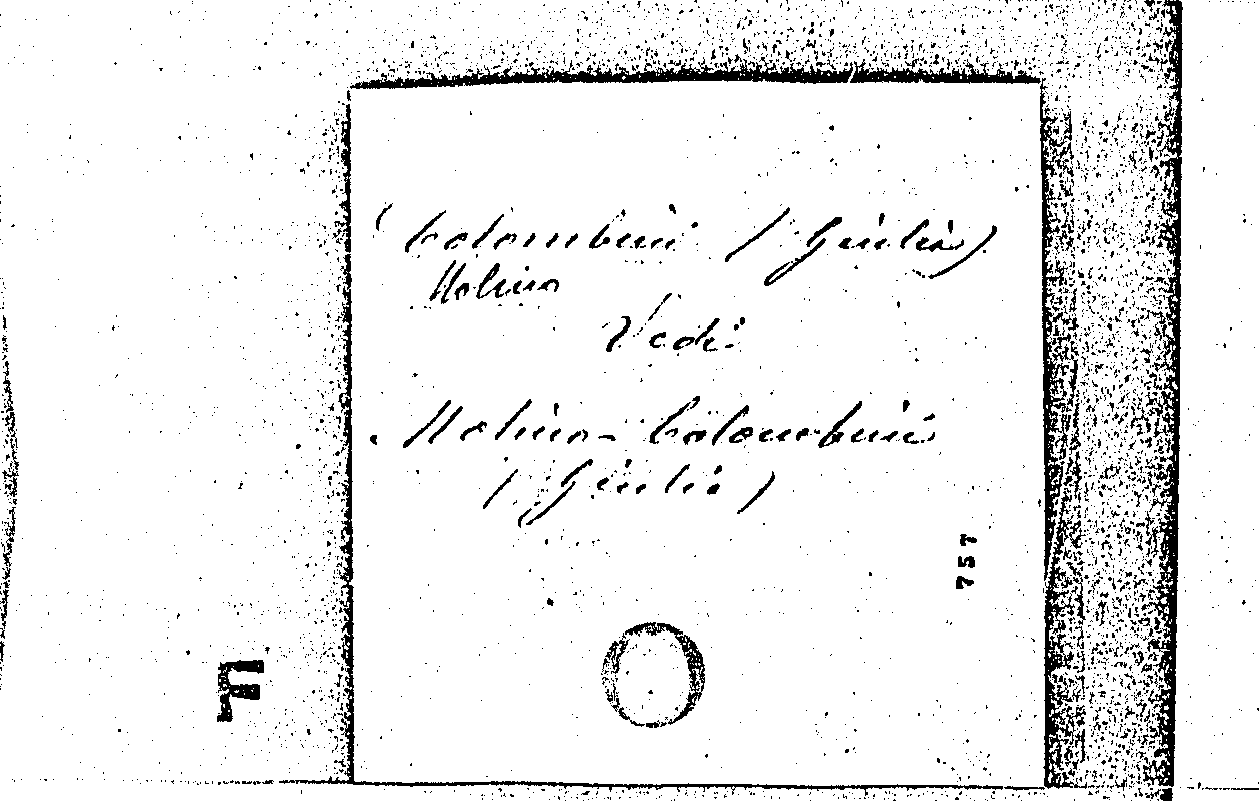 Colombini (Giulia)
Molino
Vedi:
Molino-Colombini
(Giulia)
757
F